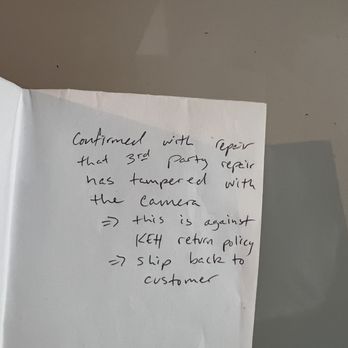 Confirmed with repair
that 3rd party repair
has tampered with
the camera
=> this is against
KEH return policy
=> ship back to
customer